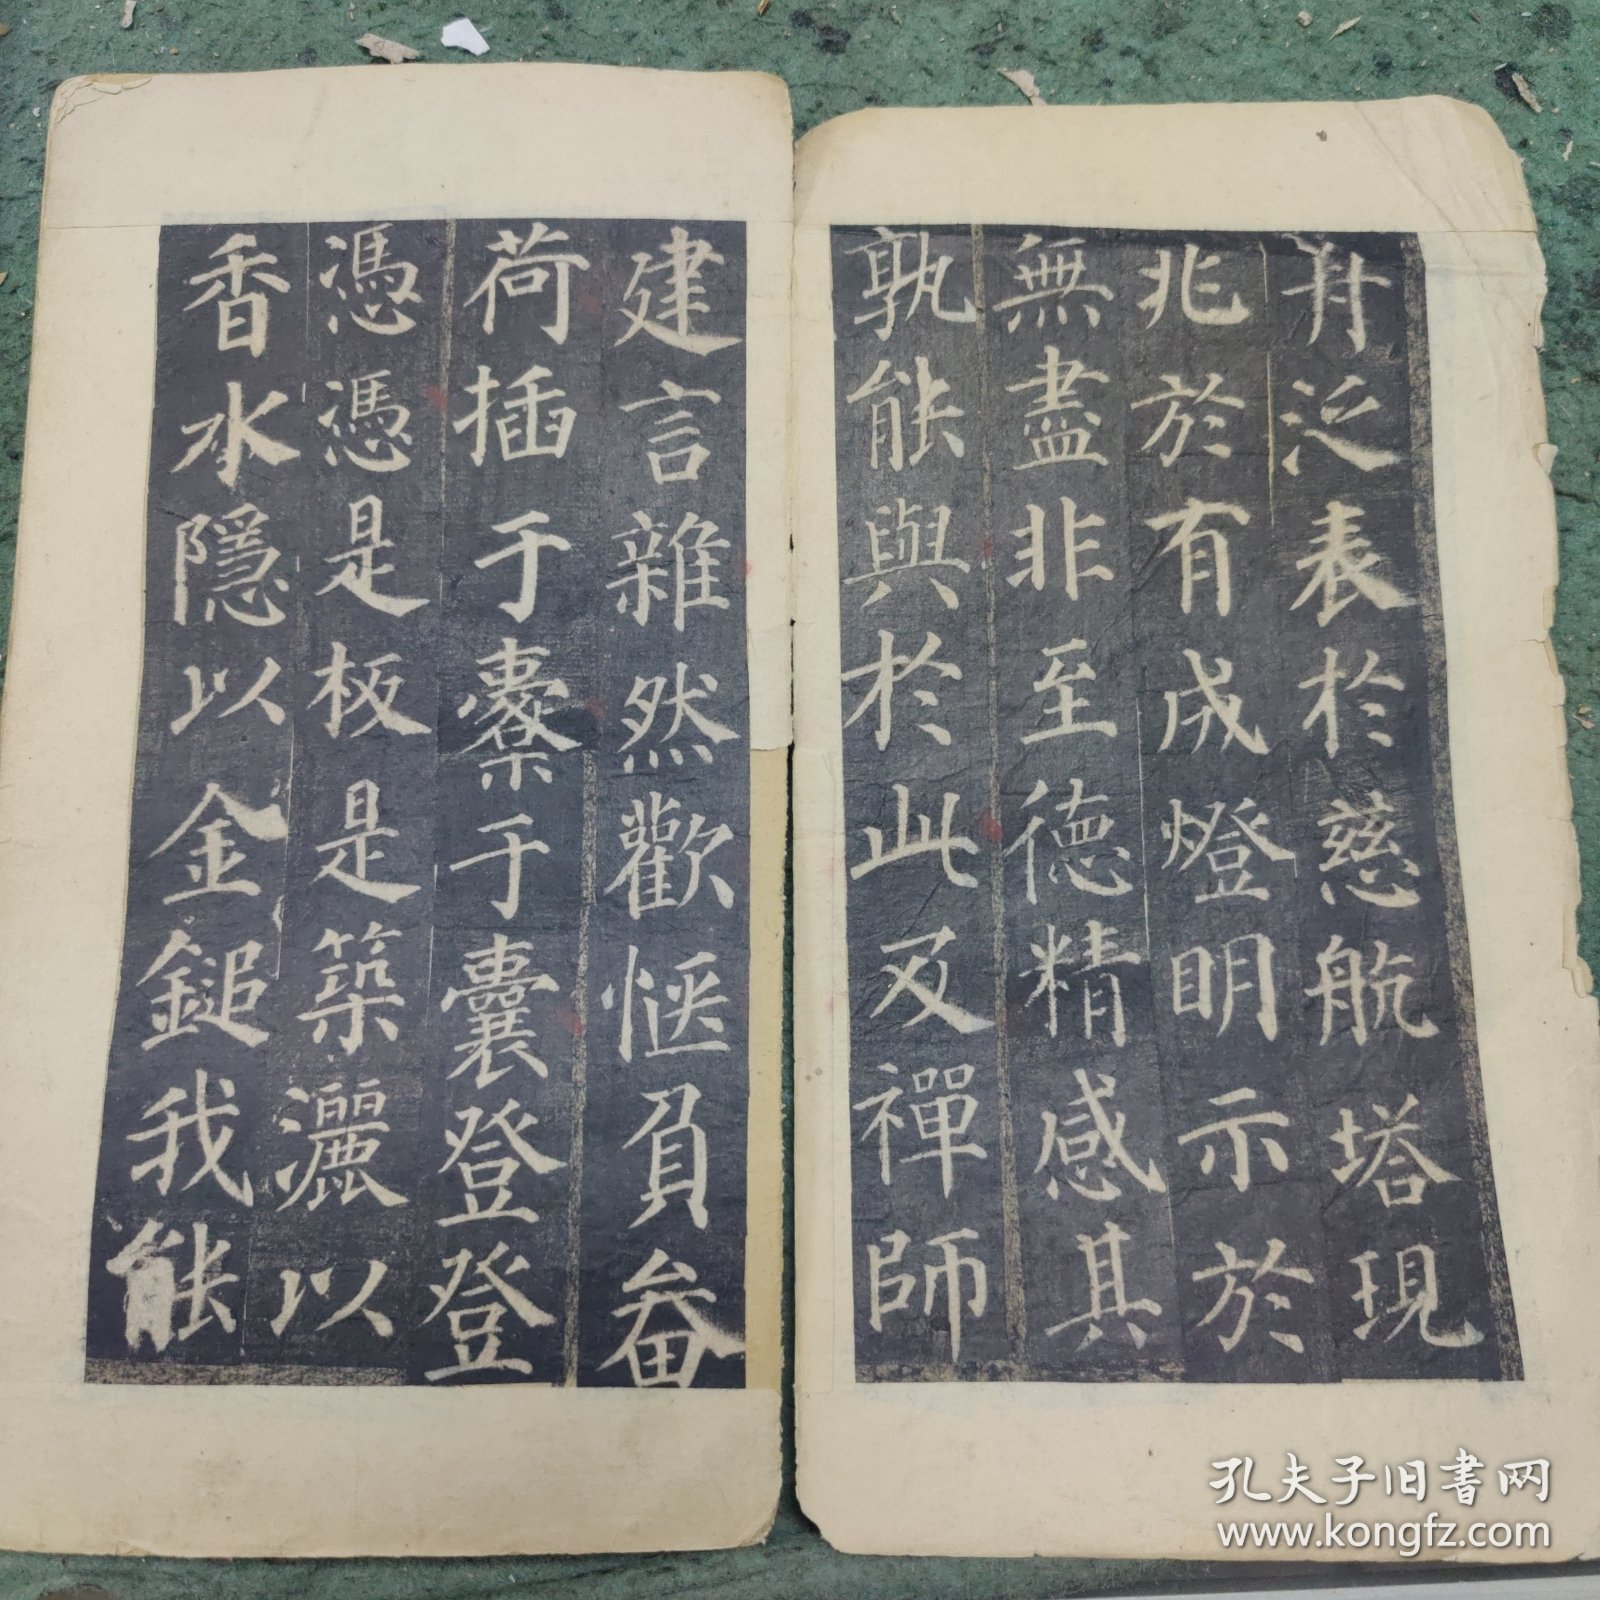 舟泛表於慈航塔現
兆於有成燈明示於
無盡非至德精感其
孰能與於此及禪師
建言雜然歡愜負畚
荷插于橐于囊登登
憑憑是板是築灑以
香水隱以金鎚我能
孔夫子旧书网
www.kongfz.com